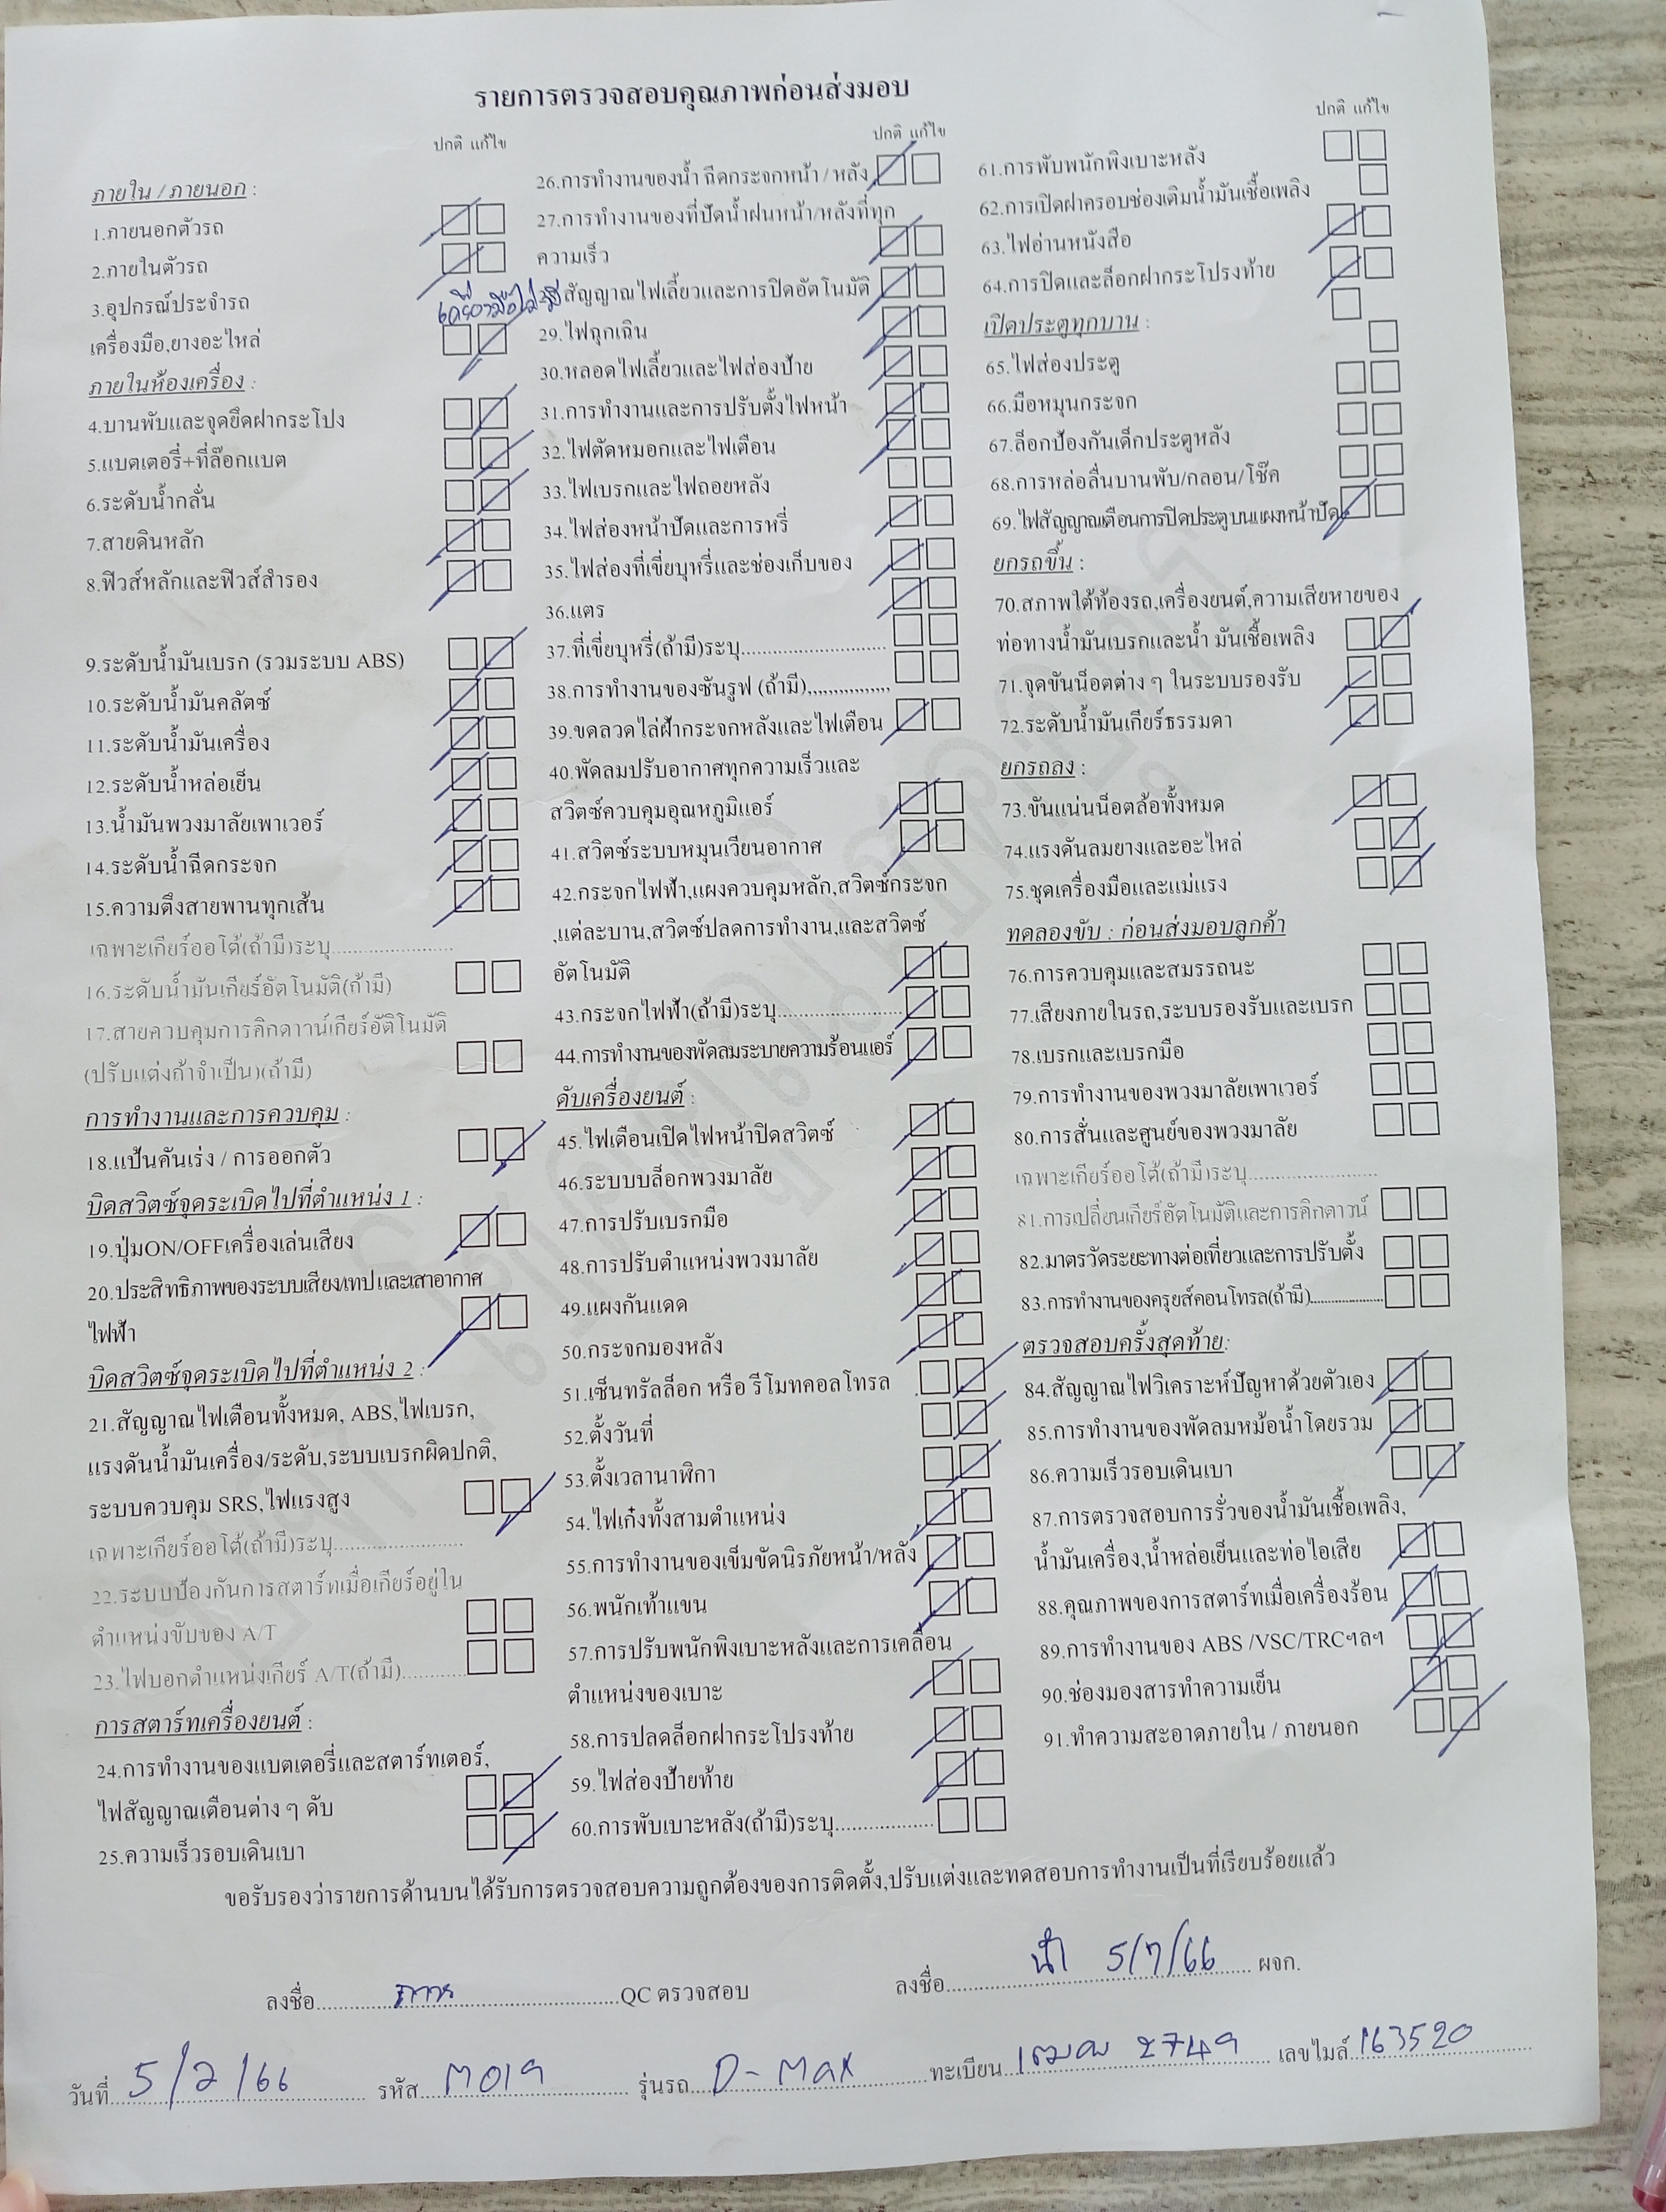 รายการตรวจสอบคุณภาพก่อนส่งมอบ
ปกติ แก้ไข
ภายใน / ภายนอก :
1.ภายนอกตัวรถ
2.ภายในตัวรถ
3.อุปกรณ์ประจำรถ
เครื่องมือไม่มี
เครื่องมือ,ยางอะไหล่
ภายในห้องเครื่อง :
4.บานพับและจุดยึดฝากระโปง
5.แบตเตอรี่+ที่ล๊อกแบต
6.ระดับน้ำกลั่น
7.สายดินหลัก
8.ฟิวส์หลักและฟิวส์สำรอง
9.ระดับน้ำมันเบรก (รวมระบบ ABS)
10.ระดับน้ำมันคลัตซ์
11.ระดับน้ำมันเครื่อง
12.ระดับน้ำหล่อเย็น
13.น้ำมันพวงมาลัยเพาเวอร์
14.ระดับน้ำฉีดกระจก
15.ความตึงสายพานทุกเส้น
เฉพาะเกียร์ออโต้(ถ้ามี)ระบุ......................
16.ระดับน้ำมันเกียร์อัตโนมัติ(ถ้ามี)
17.สายควบคุมการคิกดาวน์เกียร์อัติโนมัติ
(ปรับแต่งถ้าจำเป็น)(ถ้ามี)
การทำงานและการควบคุม :
18.แป้นคันเร่ง / การออกตัว
บิดสวิตซ์จุดระเบิดไปที่ตำแหน่ง 1 :
19.ปุ่มON/OFFเครื่องเล่นเสียง
20.ประสิทธิภาพของระบบเสียง/เทป และเสาอากาศ
ไฟฟ้า
บิดสวิตซ์จุดระเบิดไปที่ตำแหน่ง 2 :
21.สัญญาณไฟเตือนทั้งหมด, ABS,ไฟเบรก,
แรงดันน้ำมันเครื่อง/ระดับ,ระบบเบรกผิดปกติ,
ระบบควบคุม SRS,ไฟแรงสูง
เฉพาะเกียร์ออโต้(ถ้ามี)ระบุ.......................
22.ระบบป้องกันการสตาร์ทเมื่อเกียร์อยู่ใน
ตำแหน่งขับของ A/T
23.ไฟบอกตำแหน่งเกียร์ A/T(ถ้ามี)...........
การสตาร์ทเครื่องยนต์ :
24.การทำงานของแบตเตอรี่และสตาร์ทเตอร์,
ไฟสัญญาณเตือนต่าง ๆ ดับ
25.ความเร็วรอบเดินเบา
ปกติ แก้ไข
26.การทำงานของน้ำ ฉีดกระจกหน้า / หลัง
27.การทำงานของที่ปัดน้ำฝนหน้า/หลังที่ทุก
ความเร็ว
สัญญาณไฟเลี้ยวและการปิดอัตโนมัติ
29.ไฟฉุกเฉิน
30.หลอดไฟเลี้ยวและไฟส่องป้าย
31.การทำงานและการปรับตั้งไฟหน้า
32.ไฟตัดหมอกและไฟเตือน
33.ไฟเบรกและไฟถอยหลัง
34.ไฟส่องหน้าปัดและการหรี่
35.ไฟส่องที่เขี่ยบุหรี่และช่องเก็บของ
36.แตร
37.ที่เขี่ยบุหรี่(ถ้ามี)ระบุ...........................
38.การทำงานของซันรูฟ (ถ้ามี)...............
39.ขดลวดไล่ฝ้ากระจกหลังและไฟเตือน
40.พัดลมปรับอากาศทุกความเร็วและ
สวิตซ์ควบคุมอุณหภูมิแอร์
41.สวิตซ์ระบบหมุนเวียนอากาศ
42.กระจกไฟฟ้า,แผงควบคุมหลัก,สวิตซ์กระจก
,แต่ละบาน,สวิตซ์ปลดการทำงาน,และสวิตซ์
อัตโนมัติ
43.กระจกไฟฟ้า(ถ้ามี)ระบุ.......................
44.การทำงานของพัดลมระบายความร้อนแอร์
ดับเครื่องยนต์ :
45.ไฟเตือนเปิดไฟหน้าปิดสวิตซ์
46.ระบบบล็อกพวงมาลัย
47.การปรับเบรกมือ
48.การปรับตำแหน่งพวงมาลัย
49.แผงกันแดด
50.กระจกมองหลัง
51.เซ็นทรัลล็อก หรือ รีโมทคอลโทรล
52.ตั้งวันที่
53.ตั้งเวลานาฬิกา
54.ไฟเก๋งทั้งสามตำแหน่ง
55.การทำงานของเข็มขัดนิรภัยหน้า/หลัง
56.พนักเท้าแขน
57.การปรับพนักพิงเบาะหลังและการเคลื่อน
ตำแหน่งของเบาะ
58.การปลดล็อกฝากระโปรงท้าย
59.ไฟส่องป้ายท้าย
60.การพับเบาะหลัง(ถ้ามี)ระบุ..................
ปกติ แก้ไข
61.การพับพนักพิงเบาะหลัง
62.การเปิดฝาครอบช่องเติมน้ำมันเชื้อเพลิง
63.ไฟอ่านหนังสือ
64.การปิดและล็อกฝากระโปรงท้าย
เปิดประตูทุกบาน :
65.ไฟส่องประตู
66.มือหมุนกระจก
67.ล็อกป้องกันเด็กประตูหลัง
68.การหล่อลื่นบานพับ/กลอน/โช๊ค
69.ไฟสัญญาณเตือนการปิดประตูบนแผงหน้าปัด
ยกรถขึ้น :
70.สภาพใต้ท้องรถ,เครื่องยนต์,ความเสียหายของ
ท่อทางน้ำมันเบรกและน้ำ มันเชื้อเพลิง
71.จุดขันน็อตต่าง ๆ ในระบบรองรับ
72.ระดับน้ำมันเกียร์ธรรมดา
ยกรถลง :
73.ขันแน่นน็อตล้อทั้งหมด
74.แรงดันลมยางและอะไหล่
75.ชุดเครื่องมือและแม่แรง
ทดลองขับ : ก่อนส่งมอบลูกค้า
76.การควบคุมและสมรรถนะ
77.เสียงภายในรถ,ระบบรองรับและเบรก
78.เบรกและเบรกมือ
79.การทำงานของพวงมาลัยเพาเวอร์
80.การสั่นและศูนย์ของพวงมาลัย
เฉพาะเกียร์ออโต้(ถ้ามี)ระบุ.......................
81.การเปลี่ยนเกียร์อัตโนมัติและการคิกดาวน์
82.มาตรวัดระยะทางต่อเที่ยวและการปรับตั้ง
83.การทำงานของครุยส์คอนโทรล(ถ้ามี)....................
ตรวจสอบครั้งสุดท้าย:
84.สัญญาณไฟวิเคราะห์ปัญหาด้วยตัวเอง
85.การทำงานของพัดลมหม้อน้ำโดยรวม
86.ความเร็วรอบเดินเบา
87.การตรวจสอบการรั่วของน้ำมันเชื้อเพลิง,
น้ำมันเครื่อง,น้ำหล่อเย็นและท่อไอเสีย
88.คุณภาพของการสตาร์ทเมื่อเครื่องร้อน
89.การทำงานของ ABS /VSC/TRCฯลฯ
90.ช่องมองสารทำความเย็น
91.ทำความสะอาดภายใน / ภายนอก
ขอรับรองว่ารายการด้านบนได้รับการตรวจสอบความถูกต้องของการติดตั้ง,ปรับแต่งและทดสอบการทำงานเป็นที่เรียบร้อยแล้ว
ลงชื่อ..............................QC ตรวจสอบ
ลงชื่อ............ 5/7/66 ....... ผจก.
วันที่ 5/7/66 รหัส M019 รุ่นรถ D-MAX ทะเบียน 2749 เลขไมล์ 163520